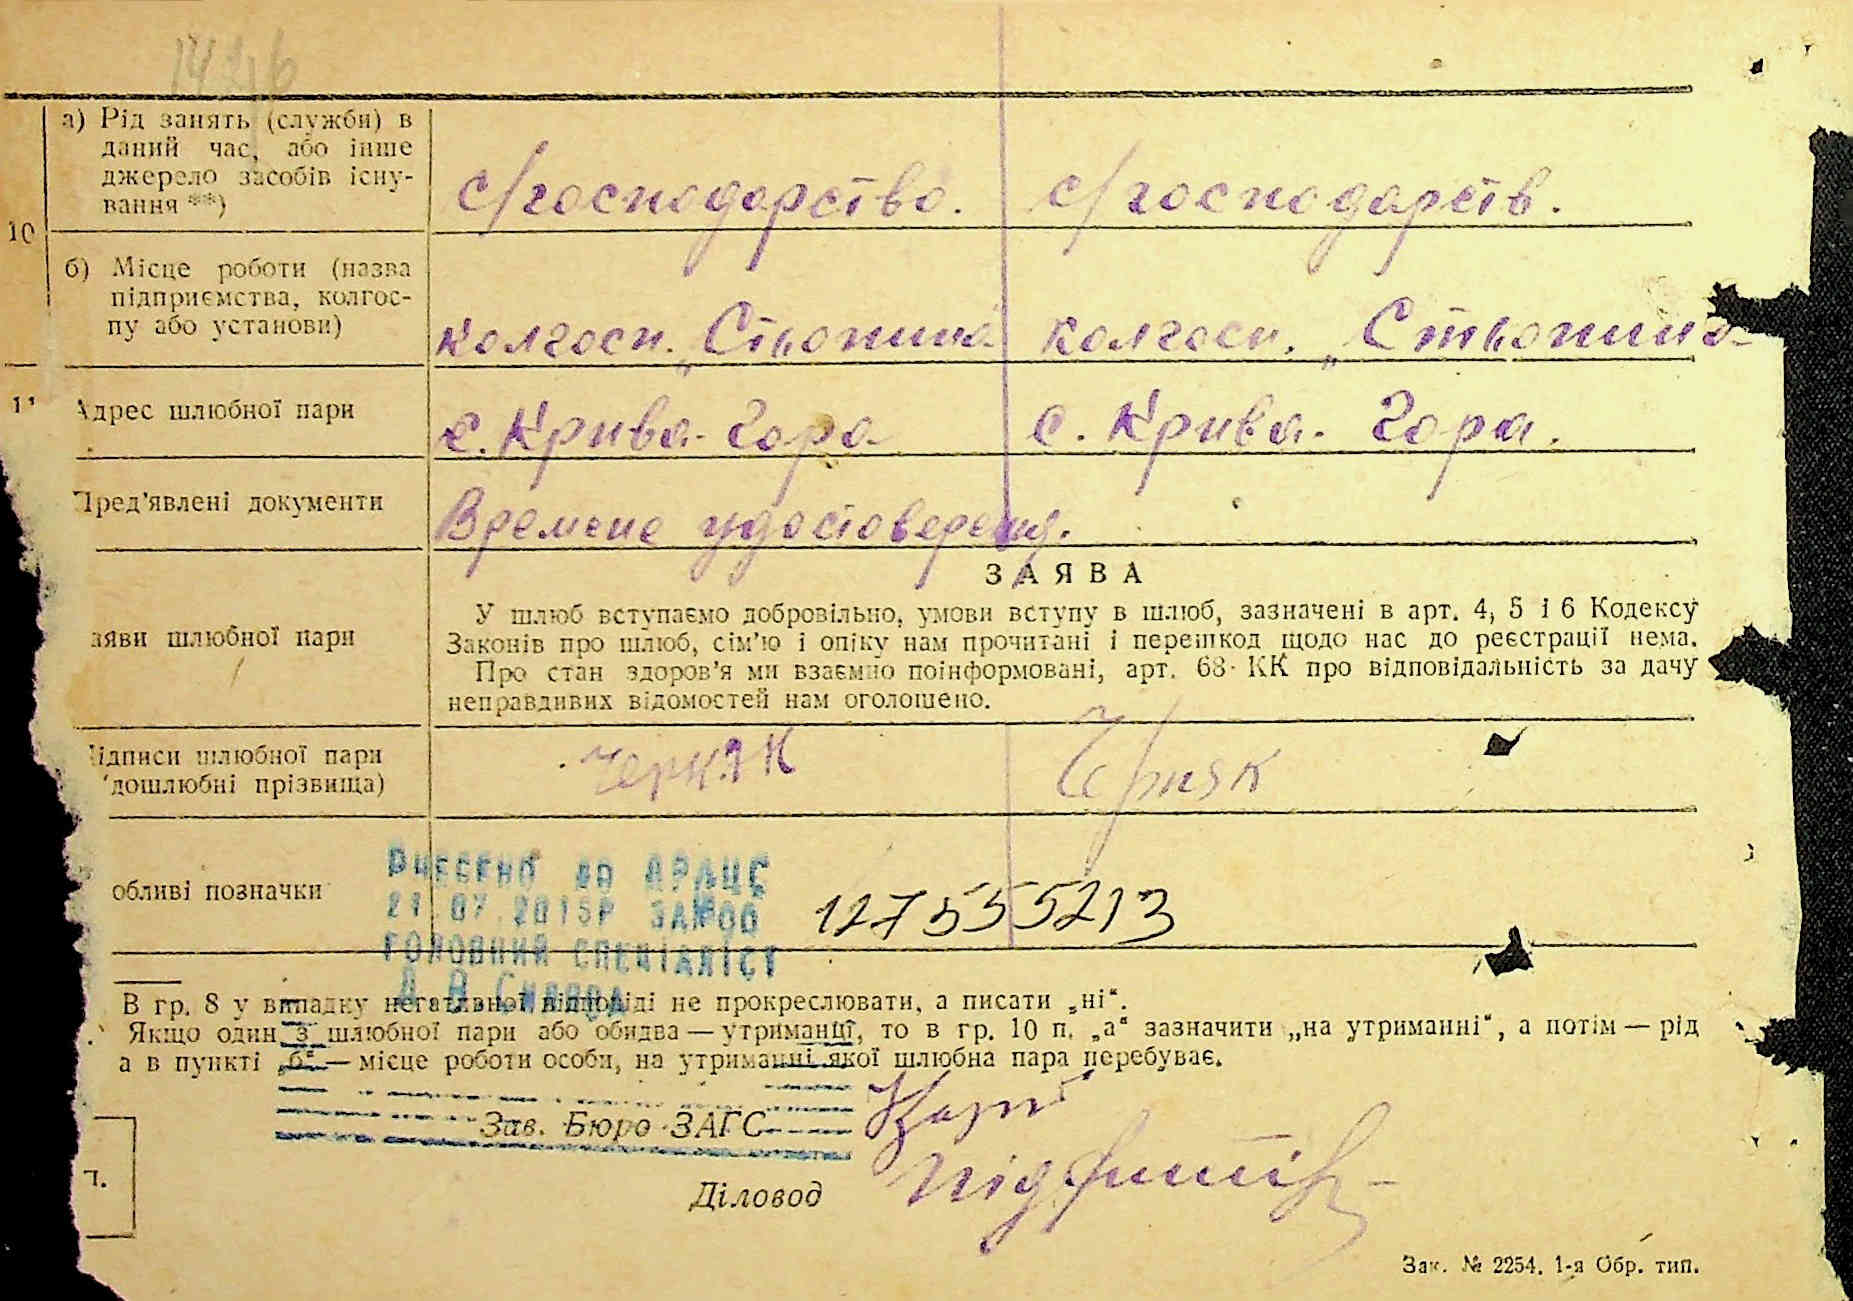 1426
а) Рід занять (служби) в
даний час, або інше
джерело засобів існу-
вання **)
с/господарство. с/господарств.
10
б) Місце роботи (назва
підприємства, колгос-
пу або установи)
колгосп. колгосп.
11 Адрес шлюбної пари
с. Крива-Гора с. Крива-Гора.
Пред'явлені документи
Времене удостоверения.
ЗАЯВА
У шлюб вступаємо добровільно, умови вступу в шлюб, зазначені в арт. 4, 5 і 6 Кодексу
Законів про шлюб, сім'ю і опіку нам прочитані і перешкод щодо нас до реєстрації нема.
аяви шлюбної пари
Про стан здоров'я ми взаємно поінформовані, арт. 68 КК про відповідальність за дачу
неправдивих відомостей нам оголошено.
ідписи шлюбної пари
(дошлюбні прізвища)
Черняк
обливі позначки
ВНЕСЕНО ДО ДРАЦС
21.07.2015Р
127555213
ГОЛОВНИЙ СПЕЦІАЛІСТ
В гр. 8 у випадку негативної відповіді не прокреслювати, а писати „ні“.
Якщо один з шлюбної пари або обидва — утриманці, то в гр. 10 п. „а“ зазначити „на утриманні“, а потім — рід
а в пункті „б“ — місце роботи особи, на утриманні якої шлюбна пара перебуває.
Зав. Бюро ЗАГС
Діловод
Зак. № 2254. 1-я Обр. тип.